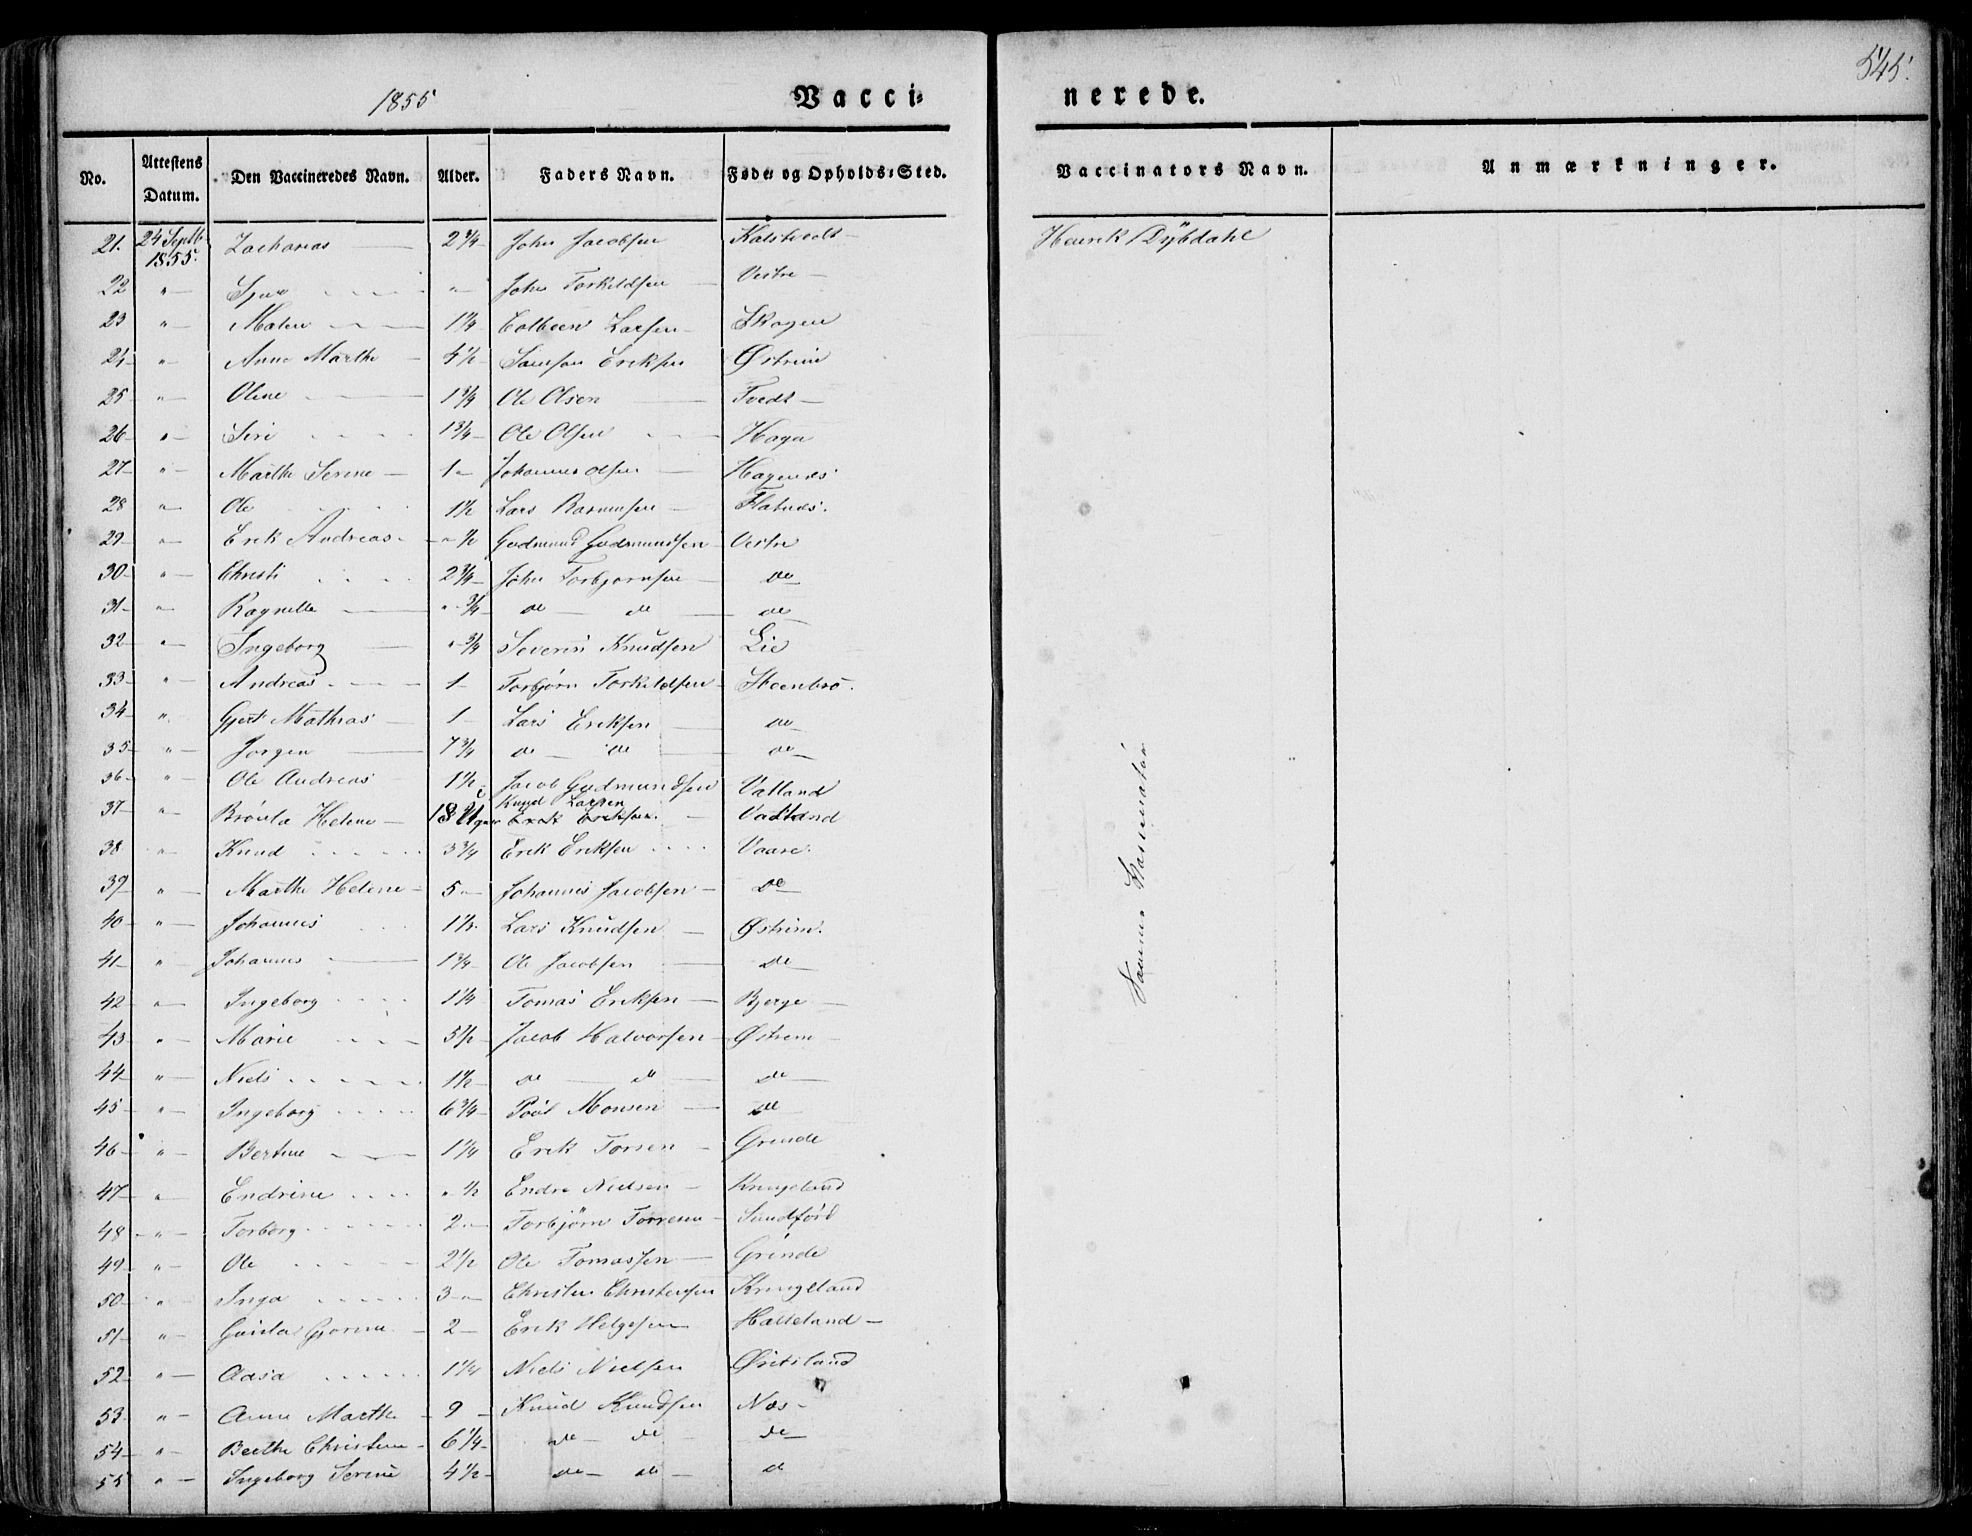 545.
1855
Vacci-
nerede.
No. Attestens Datum. Den Vaccineredes Navn. Alder. Faders Navn. Føde- og Opholds-Sted. Vaccinators Navn. Anmærkninger.
21. 24 Septb. 1855. Zacharias 2 3/4 John Jacobsen Kalstvedt Henrik Dybdahl
22 " John Torkildsen Vestre
23 " Malene 1 1/4 Larsen Skogen
24 " Anne Marthe 4 1/2 Samson Eriksen Østrem
25 " Oline 1 3/4 Ole Olsen Tvedt
26 " Siri 1 3/4 Ole Olsen Haga
27 " Marthe Serine 1 " Johannes Olsen Hagenæs
28 " Ole 1 1/2 Lars Rasmusen Flatnæs.
29 " Erik Andreas " 1/2 Gudmund Gudmundsen Vestre
30 " Christi 2 3/4 John Torbjørnsen do
31 " Ragnilla " 3/4 do do do
32 " Ingeborg " 3/4 Severin Knudsen Lie
33 " Andreas 1 Torbjørn Torkildsen Steensbrø.
34 " Gjert Mathias 1 Lars Eriksen do
35 " Jørgen 7 3/4 do do do
36 " Ole Andreas 1 1/2 Jacob Gudmundsen Vatland
37 " Brønla Helene 18 Uger Knud Larsen Erik Eriksen. Vadland
38 " Knud 3 3/4 Erik Eriksen Vaare.
39 " Marthe Helene 5 " Johannes Jacobsen do
40 " Johannes 1 1/2 Lars Knudsen Østrem.
41 " Johannes 1 3/4 Ole Jacobsen do
42 " Ingeborg 1 1/4 Tomas Eriksen Bjerge
43 " Marie 5 1/2 Jacob Halvorsen Østrem
44 " Niels 1 1/2 do d do
45 " Ingeborg 6 3/4 Poul Monsen do
46 " Bertine 1 1/4 Erik Torsen Grinde
47 " Endrine " 1/2 Endre Nielsen Kringeland
48 " Torborg 2 " Torbjørn Torresen Sundførd
49 " Ole 2 1/2 Ole Tomassen Grinde
50 " Inga 3 " Christen Christensen Kringeland
51 " Gurine 2 Erik Helgesen Hatteland
52 " Aasa 1 1/4 Niels Nielsen
53 " Anne Marthe 9 Knud Knudsen Næs
54 " Berthe Christine 6 1/4 do do do
55 " Ingeborg Serine 4 1/2 do do d
Samme Vaccinatør